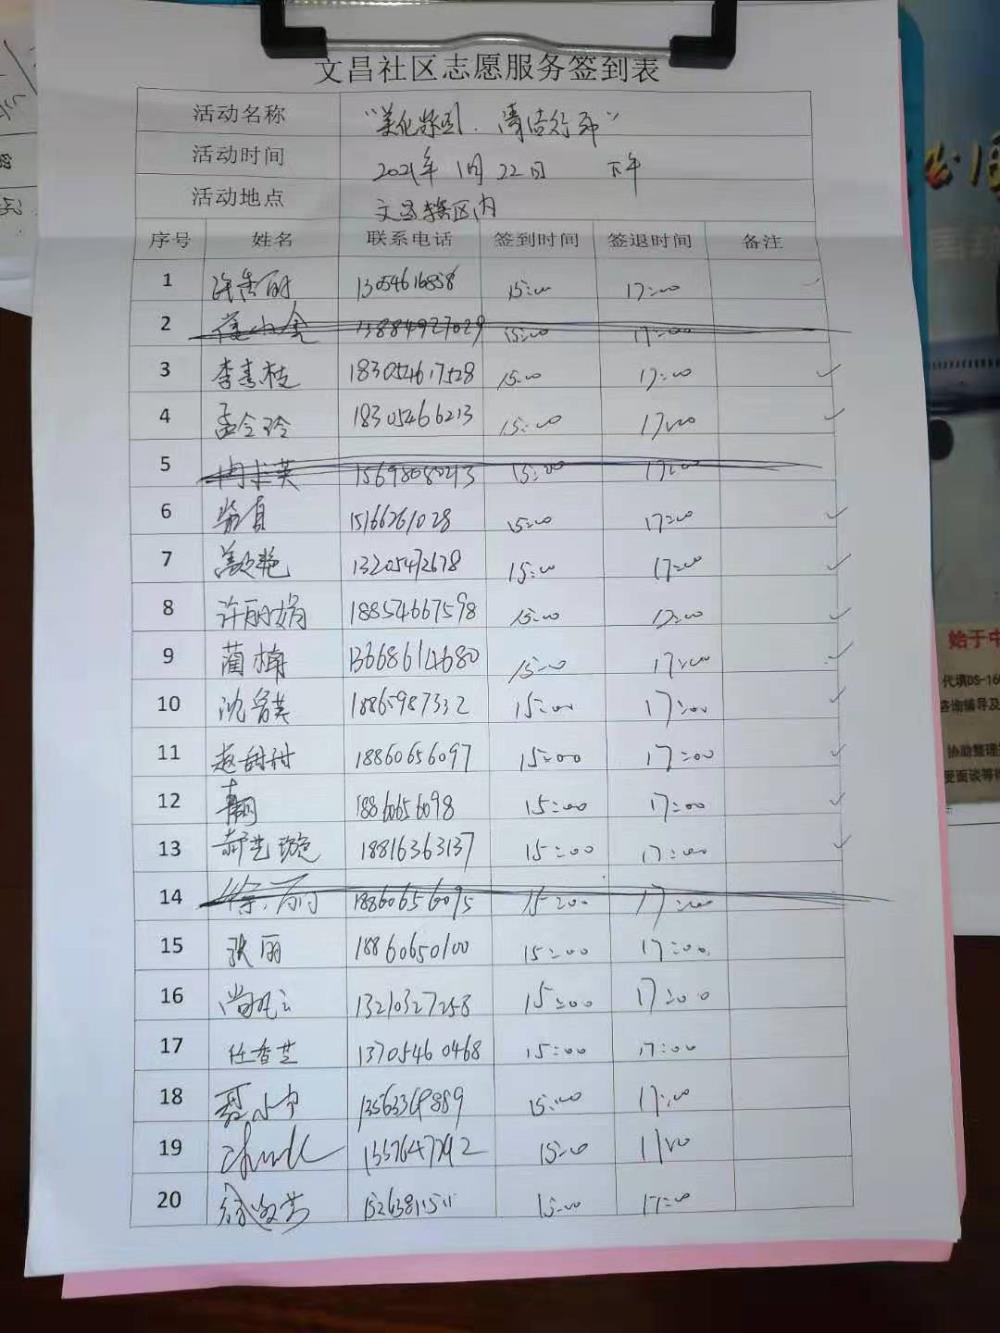 文昌社区志愿服务签到表
活动名称 "美化 清洁行动"
活动时间 2021年1月22日 下午
活动地点 文昌辖区内
序号 姓名 联系电话 签到时间 签退时间 备注
1 13054616858 15:00 17:00
2 13884927029 15:00 17:00
3 李春枝 183054617528 15:00 17:00
4 孟令玲 18305466213 15:00 17:00
5 15698080213 15:00 17:00
6 15166261028 15:00 17:00
7 13205472678 15:00 17:00
8 许丽娟 18854667598 15:00 17:00
9 蔺梅 13668614680 15:00 17:00
10 18865987332 15:00 17:00
11 赵甜甜 18860656097 15:00 17:00
12 18860656098 15:00 17:00
13 郝艺璇 18816363137 15:00 17:00
14 徐丽 18860656095 15:00 17:00
15 张丽 18860650100 15:00 17:00
16 13210327258 15:00 17:00
17 任香芝 13705460468 15:00 17:00
18 聂小宁 13563369889 15:00 17:00
19 13576477292 15:00 17:00
20 15263811511 15:00 17:00
始于中
代填DS-16
咨询辅导及
协助整理
受面谈等